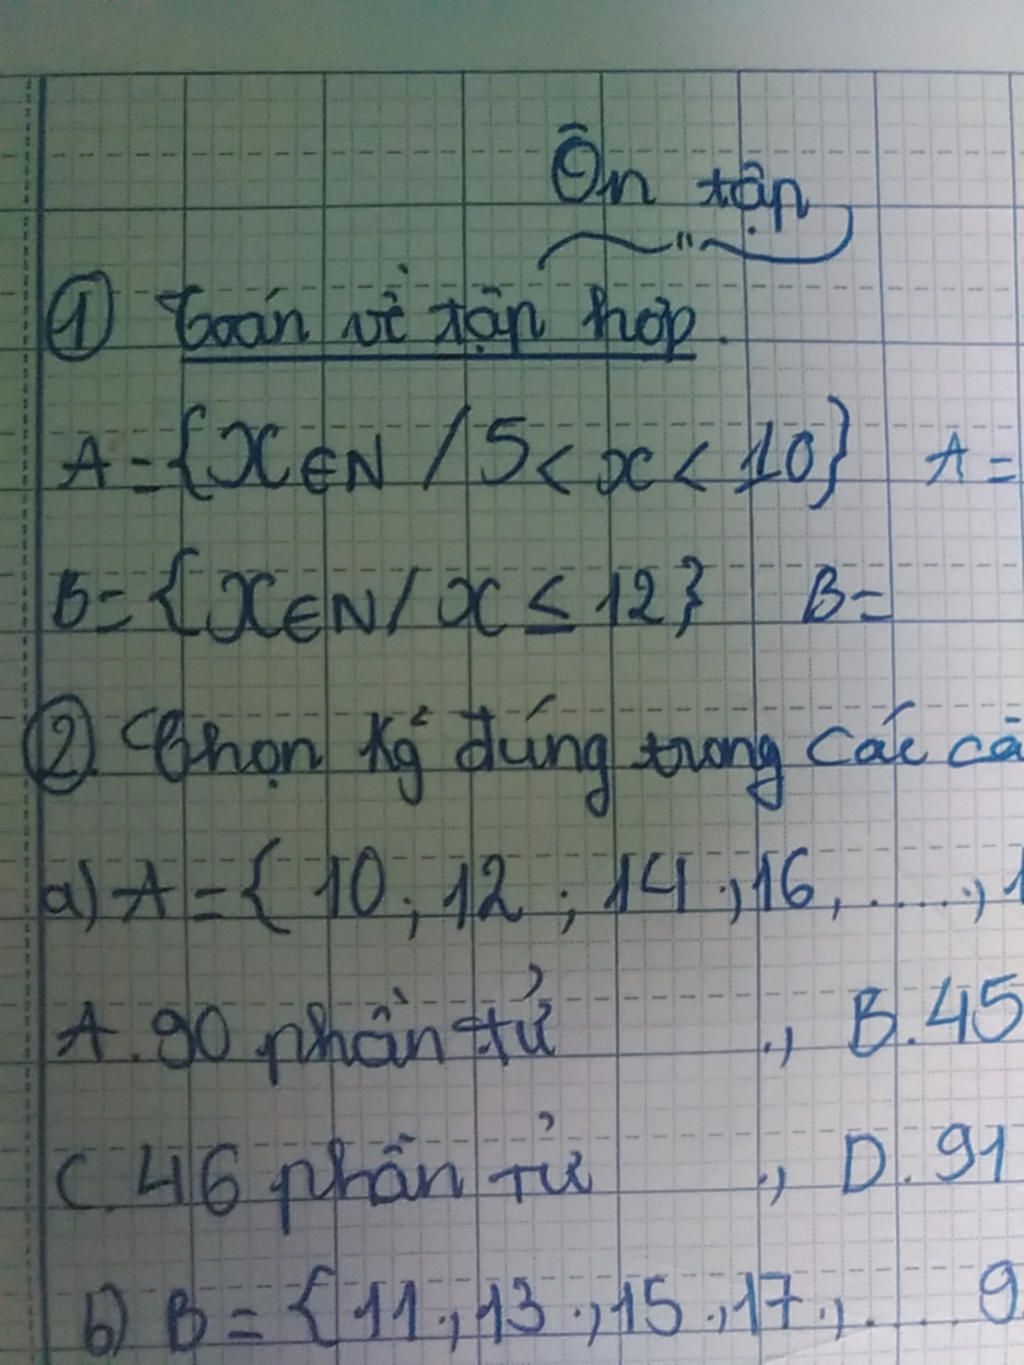 Ôn tập
① Toán về tập hợp.
A = {x ∈ N / 5 < x < 10} A =
B = {x ∈ N / x ≤ 12} B =
② Chọn ký đúng trong các câ
a) A = { 10; 12; 14; 16, ....; 1
A. 90 phần tử ., B. 45
C. 46 phần tử ., D. 91
b) B = {11; 13; 15; 17; .... 9